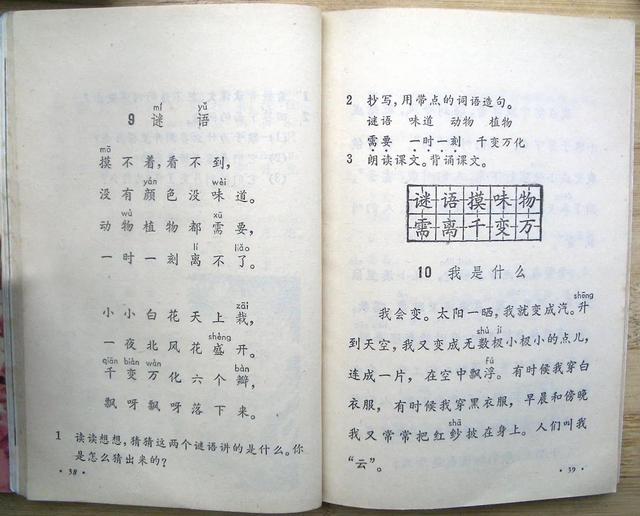 9 谜语
mí yǔ
mō
摸不着，看不到，
yán wèi
没有颜色没味道。
wù xū
动物植物都需要，
lí liǎo
一时一刻离不了。
zāi
小小白花天上栽，
shèng
一夜北风花盛开。
qiān biàn wàn bàn
千变万化六个瓣，
飘呀飘呀落下来。
1 读读想想，猜猜这两个谜语讲的是什么。你
是怎么猜出来的？
·38·
2 抄写，用带点的词语造句。
谜语 味道 动物 植物
需要 一时一刻 千变万化
3 朗读课文。背诵课文。
谜语摸味物
需离千变万
10 我是什么
shēng
我会变。太阳一晒，我就变成汽。升
shù jí
到天空，我又变成无数极小极小的点儿，
fú
连成一片，在空中飘浮。有时候我穿白
衣服，有时候我穿黑衣服，早晨和傍晚
shā
我又常常把红纱披在身上。人们叫我
“云”。
·39·